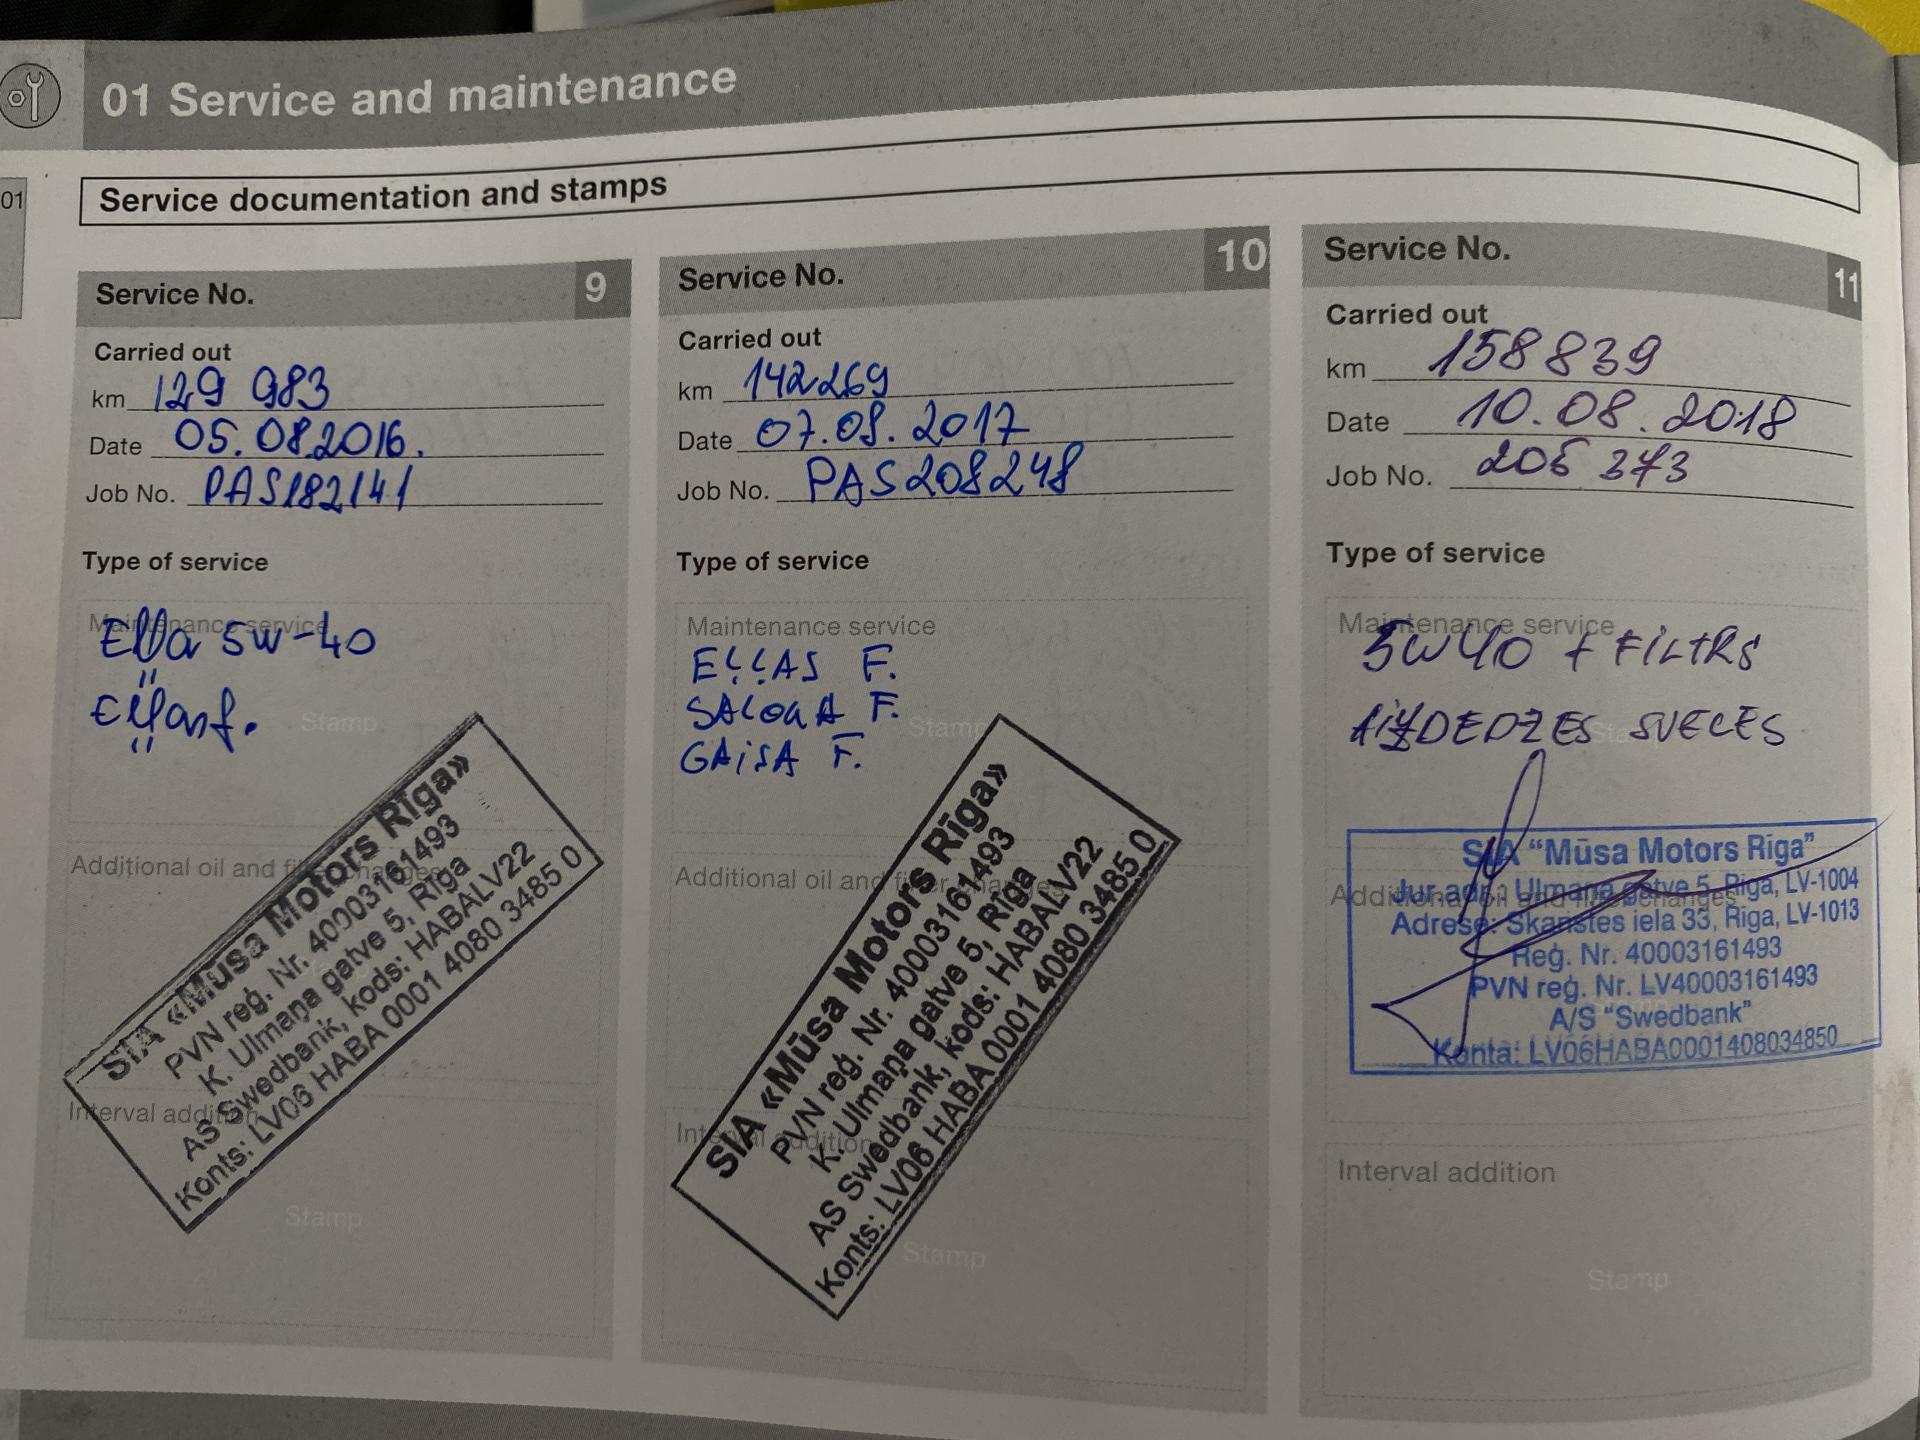 01 Service and maintenance
01
Service documentation and stamps
Service No. 9
Carried out
km 129 983
Date 05.08.2016.
Job No. PAS182141
Type of service
Maintenance service
Eļļa 5W-40
Eļļas f.
Stamp
SIA «Mūsa Motors Rīga»
PVN reģ. Nr. 40003161493
K. Ulmaņa gatve 5, Rīga
AS Swedbank, kods: HABALV22
Konts: LV06 HABA 0001 4080 3485 0
Additional oil and filter changes
Interval addition
Stamp
Service No. 10
Carried out
km 142269
Date 07.08.2017
Job No. PAS208248
Type of service
Maintenance service
EĻĻAS F.
SALONA F.
GAISA F.
Stamp
SIA «Mūsa Motors Rīga»
PVN reģ. Nr. 40003161493
K. Ulmaņa gatve 5, Rīga
AS Swedbank, kods: HABALV22
Konts: LV06 HABA 0001 4080 3485 0
Additional oil and filter changes
Interval addition
Stamp
Service No. 11
Carried out
km 158839
Date 10.08.2018
Job No. 205373
Type of service
Maintenance service
5W40 + FILTRS
AIZDEDZES SVECES
Stamp
SIA "Mūsa Motors Rīga"
Jur.adr.: Ulmaņa gatve 5, Rīga, LV-1004
Additional oil and filter changes
Adrese: Skanstes iela 33, Rīga, LV-1013
Reģ. Nr. 40003161493
PVN reģ. Nr. LV40003161493
A/S "Swedbank"
Konta: LV06HABA0001408034850
Interval addition
Stamp